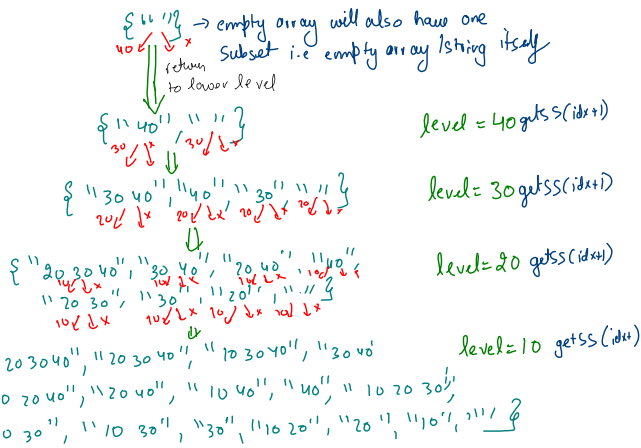 { " " } → empty array will also have one
subset i.e empty array/string itself
40 x
return
to lower level
{ " 40 " , " " }
30 x 30 x
level = 40 getSS(idx+1)
{ "30 40", "40", "30", " " }
20 x 20 x 20 x 20 x
level = 30 getSS(idx+1)
{ "20 30 40", "30 40", "20 40", "40",
10 x 10 x 10 x 10 x
"20 30", "30", "20", " " }
10 x 10 x 10 x 10 x
level = 20 getSS(idx+1)
20 30 40", "20 30 40", "10 30 40", "30 40
level = 10 getSS(idx+)
0 20 40", "20 40", "10 40", "40", "10 20 30",
0 30", "10 30", "30", "10 20", "20", "10", " " }